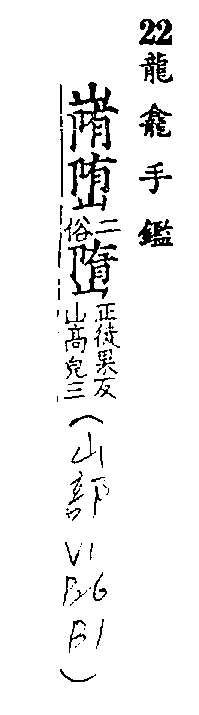 22龍龕手鑑
二
俗
正徒果反
山高皃三
(山部 V1 B6 B1)